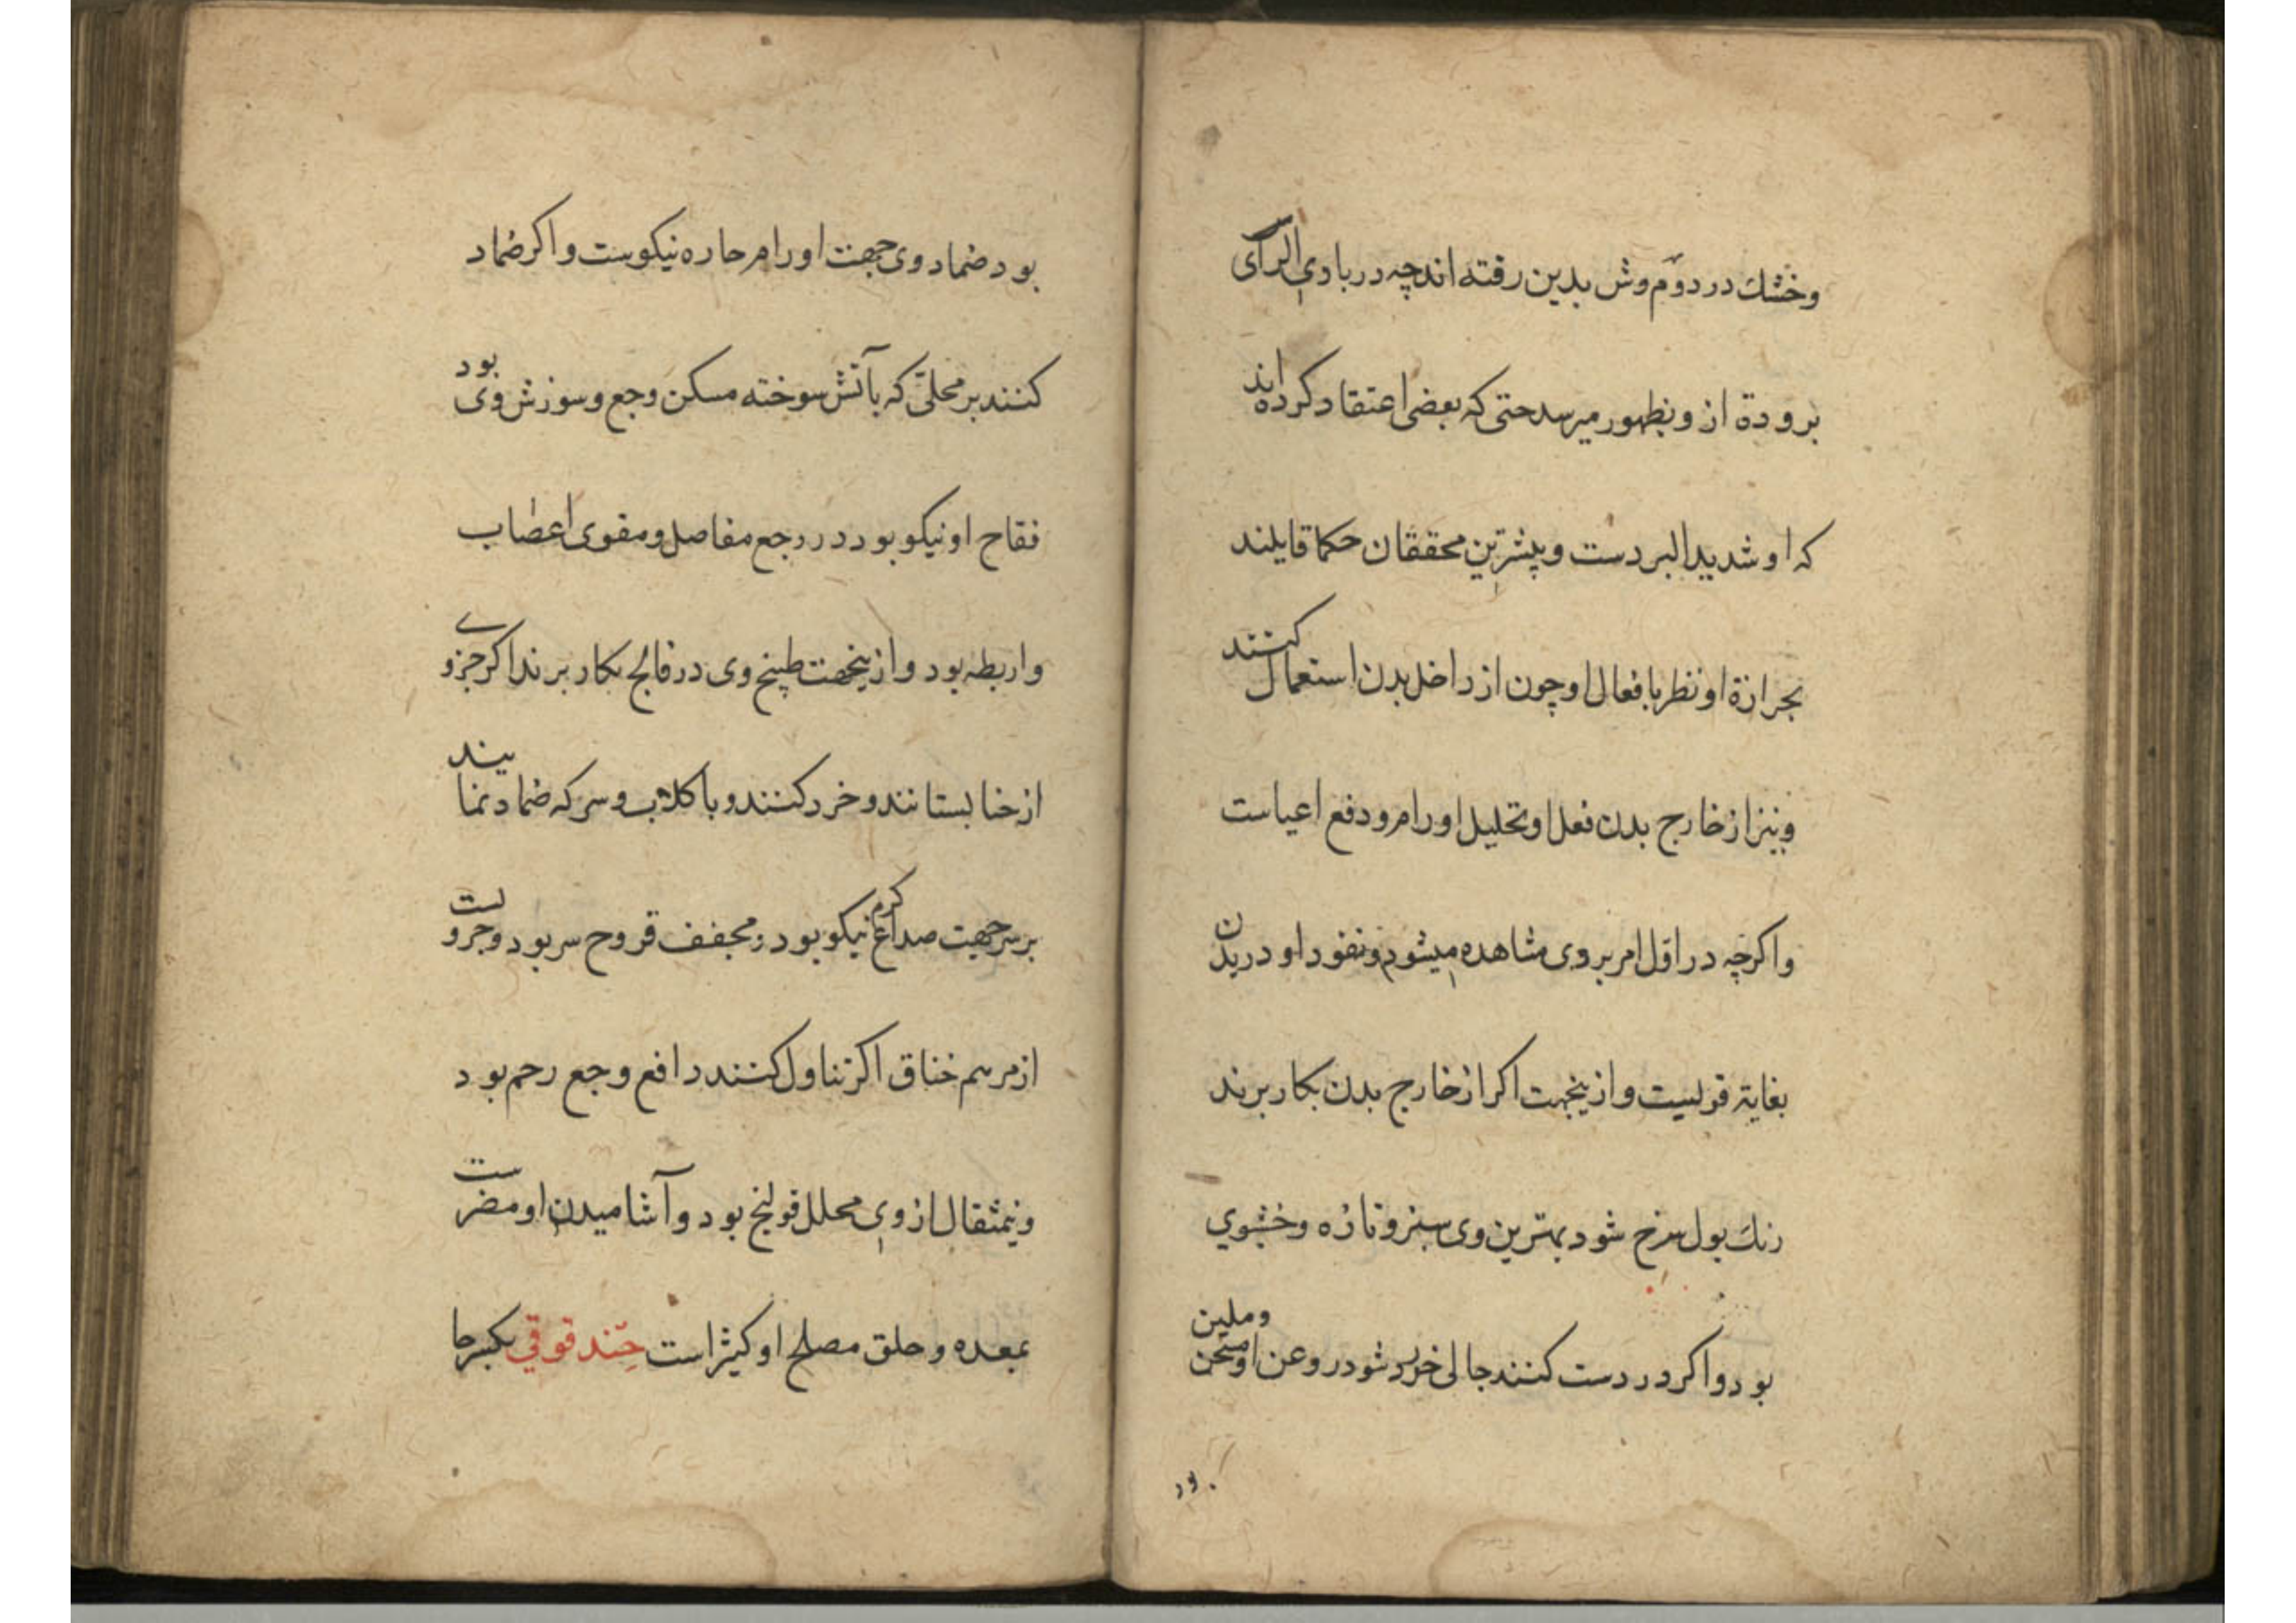 وخشك در دوّم وش بدین رفته اند چه در بادی الرآی
برودة از و بظهور میرسد حتی که بعضی اعتقاد کرده اند
که او شدید البردست و پیشترین محققان حکما قایلند
بحرارة او نظر بافعال او چون از داخل بدن استعمال کنند
ونیز از خارج بدن فعل او تحلیل اورام و دفع اعیاست
واکرچه در اوّل امر بروی مشاهده میشود و نفود او در بدن
بغایة قویست و ازینجهت اکر از خارج بدن بکار برند
رنك بول سرخ شود بهترین وی سبز و تازه وخشبوي
بود و اکر در دست کنند جالی خرد شود روعن او مسخن وملین
بود
بود ضماد وی جهت اورام حاره نیکوست و اکر ضماد
کنند بر محلّی که بآتش سوخته مسکن وجع و سوزش وی بود
فقاح او نیکو بود در وجع مفاصل و مقوی اعصاب
واربطه بود و ازینجهت طبیخ وی در فالج بکار برند اکر جزوے
از حنا بستانند و خرد کنند و با کلاب و سرکه ضماد نمایند
بر سر جهت صداع کرم نیکو بود و مجفف قروح سر بود وجزویست
از مرهم خناق اکر تناول کنند دافع وجع رحم بود
ونیمثقال از وی محلل قولنج بود و آشامیدن او مضرست
بمعده و حلق مصلح او کثیر است حَندقوقي بکسر حا